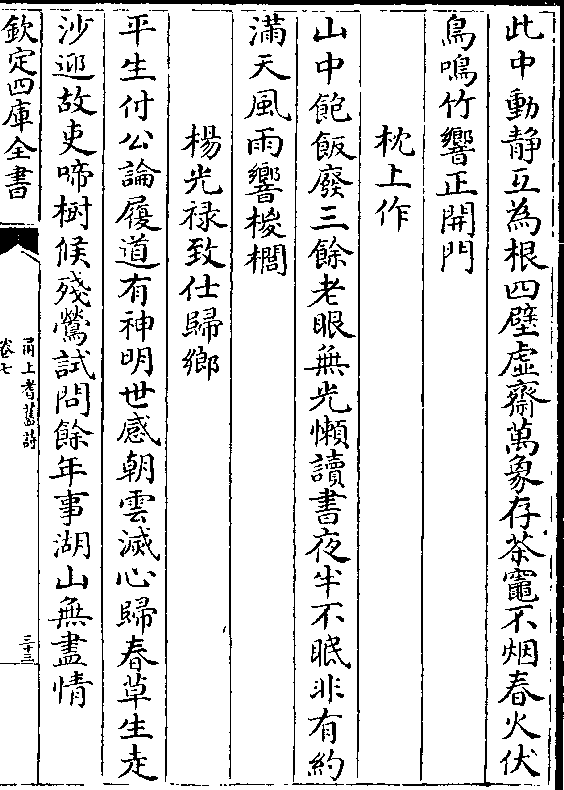 此中動静互為根四壁虚齋萬象存茶竈不烟春火伏
鳥鳴竹響正開門
枕上作
山中飽飯廢三餘老眼無光懶讀書夜半不眠非有約
滿天風雨響椶櫚
楊光禄致仕歸鄉
平生付公論履道有神明世感朝雲滅心歸春草生走
沙迎故吏啼樹候殘鶯試問餘年事湖山無盡情
欽定四庫全書
甬上耆舊詩
卷七
三十三